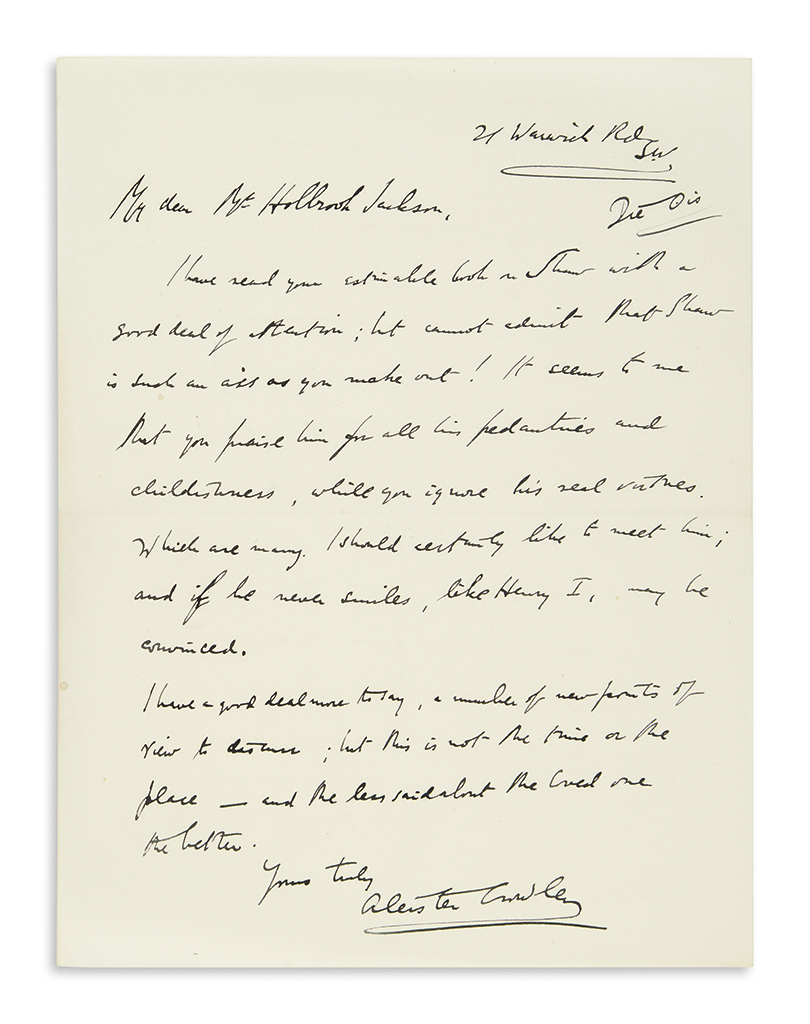 21 Warwick Rd
S.W.
My dear Mr Holbrook Jackson,
Die
I have read your estimable book on Shaw with a
good deal of attention; but cannot admit that Shaw
is such an ass as you make out! It seems to me
that you praise him for all his pedantries and
childishness, while you ignore his real virtues.
Which are many. I should certainly like to meet him;
and if he never smiles, like Henry I, may be
convinced.
I have a good deal more to say, a number of new points of
view to discuss; but this is not the time or the
place — and the less said about the loved one
the better.
Yours truly
Aleister Crowley